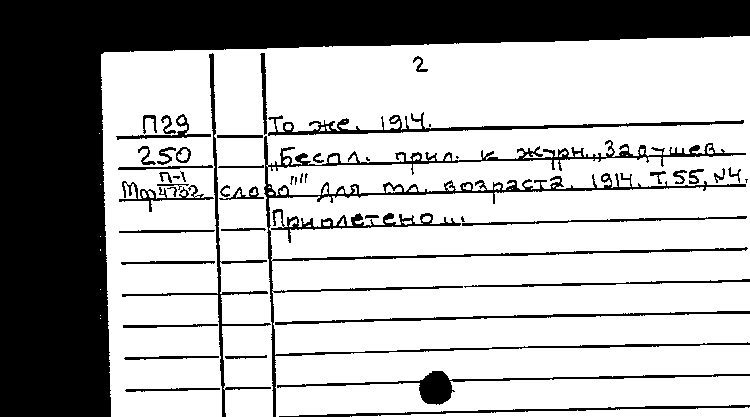 2
П29 То же. 1914.
250 „Беспл. прил. к журн. „Задушев.
Мф П-1/4732 слово"" для мл. возраста. 1914. Т.55, №4.
Приплетено...